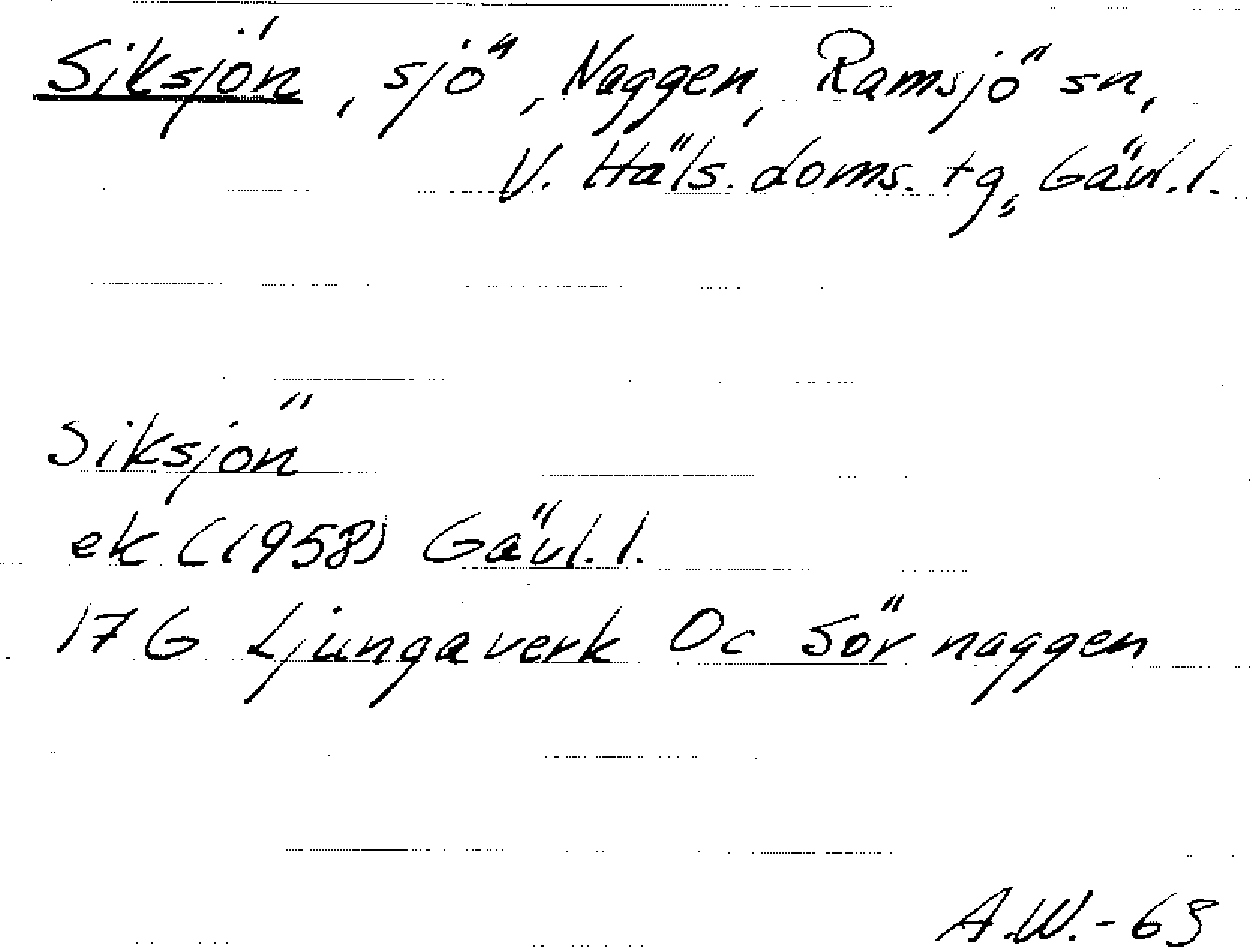 Siksjön, sjö, Naggen, Ramsjö sn,
V. Häls. doms. tg, Gävl. l.
Siksjön
ek (1958) Gävl. l.
17 G Ljungaverk 0c Sörnaggen
A.W.-65